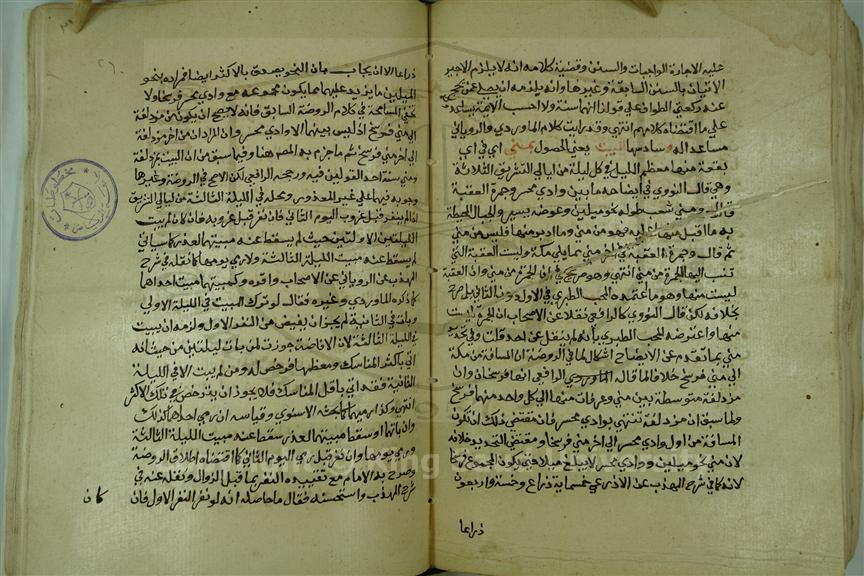 عليه الاجارة الواجبات والسنن وقضية كلامه انه لا يلزم الاجير
الاتيان بالسنن السابقة وغيرها وانه يلزمه ان يصلي عن
عنه ركعتي الطواف على قولنا انهما سنة ولا احسب الائمة يساعد
على ما اقتضاه كلامهم انتهى وقد رايت كلام الماوردي والروياني
مساعدا له وسادسها المبيت يعني الحصول بمنى اي في اي
بقعة منها معظم الليل في كل ليلة من ليالي التشريق الثلاثة
وهي قال النووي في ايضاحه ما بين وادي محسر وجمرة العقبة
قال ومنى شعب طوله نحو ميلين وعرضه يسير والجبال المحيطة
به ما اقبل منها عليه فهو من منى وما ادبر منها فليس من منى
ثم قال وجمرة العقبة في اخر منى مما يلي مكة وليست العقبة التي
تنسب اليها الجمرة من منى انتهى وهو صريح في ان الجمرة من منى وان العقبة
ليست منها وهو ما اعتمده المحب الطبري في الاول دون الثاني بل صرح
بخلافه لكن قال النووي كالرافعي نقلا عن الاصحاب ان الجمرة ليست
منها واعترضه المحب الطبري بانه لم ينقل عن احد قلت وفي تحديد
منى بما تقدم عن الايضاح اشكال لما في الروضة ان المسافة من مكة
الى منى فرسخ خلافا لما قاله الرافعي انها فرسخان وان
مزدلفة متوسطة بين منى وعرفات منها الى كل واحد منهما فرسخ
ولما سبق ان مزدلفة تنتهي بوادي محسر فان مقتضى ذلك ان تكون
المسافة من اول وادي محسر الى اخر منى فرسخا ومقتضى التحديد خلافه
لان منى نحو ميلين ووادي محسر لا يبلغ ميلا فتى يكون المجموع فرسخا
لانه كما في شرح المهذب عن الازرقي خمسماية ذراع وخمسة واربعون
ذراعا
ذراعا الا ان يجاب بان النحو يصدق بالاكثر ايضا فمراده بنحو
الميلين ما يزيد عليهما مما يكون مجموعه مع وادي محسر فرسخا ولا
تخفى المسامحة في كلام الروضة السابق فانه لا يصح ان يكون من مزدلفة
الى منى فرسخ اذ ليس بينهما الا وادي محسر وان المراد ان من اخر مزدلفة
الى اخر منى فرسخ ثم ما جزم به المصنف هنا وفيما سبق من ان المبيت بمزدلفة
ومنى سنة احد القولين فيه ورجحه الرافعي لكن الاصح في الروضة وغيرها
وجوبه فيهما على غير المعذور ومحله في الليلة الثالثة من ليالي التشريق
اذا لم ينفر قبل غروب اليوم الثاني فان نفر قبل غروبه فان كان لم يبت
الليلتين الاولتين حيث لم يسقط عنه مبيتهما العذر كما سياتي
لم يسقط عنه مبيت الليلة الثالثة ولا رمي يومها كما نقله في شرح
المهذب عن الروياني عن الاصحاب واقره وكمبيتهما مبيت احداهما
كما ذكره الماوردي وغيره فقال لو ترك المبيت في الليلة الاولى
وبات في الثانية لم يجز ان يفيض من النفر الاول ولزمه ان يبيت
في الليلة الثالثة لان الافاضة جوزت لمن بات ليلتين من حيث انه
اتى باكثر المناسك ومعظمها فرخص له ومن لم يبت الا في الليلة
الثانية فقد اتى باقل المناسك فلا يجوز ان يترخص بترك الاكثر
انتهى وكذا رميهما كما بحثه الاسنوي وقياسه ان رمي احداهما كذلك
وان باتهما او سقط مبيتهما العذر سقط عنه مبيت الليلة الثالثة
ورمي يومها وان نفر قبل رمي اليوم الثاني كما اقتضاه اطلاق الروضة
وصرح به الامام مع تقييده النفر بما قبل الزوال ونقله عنه في
شرح المهذب واستحسنه فقال ما حاصله انه لو نفر النفر الاول فان
كان